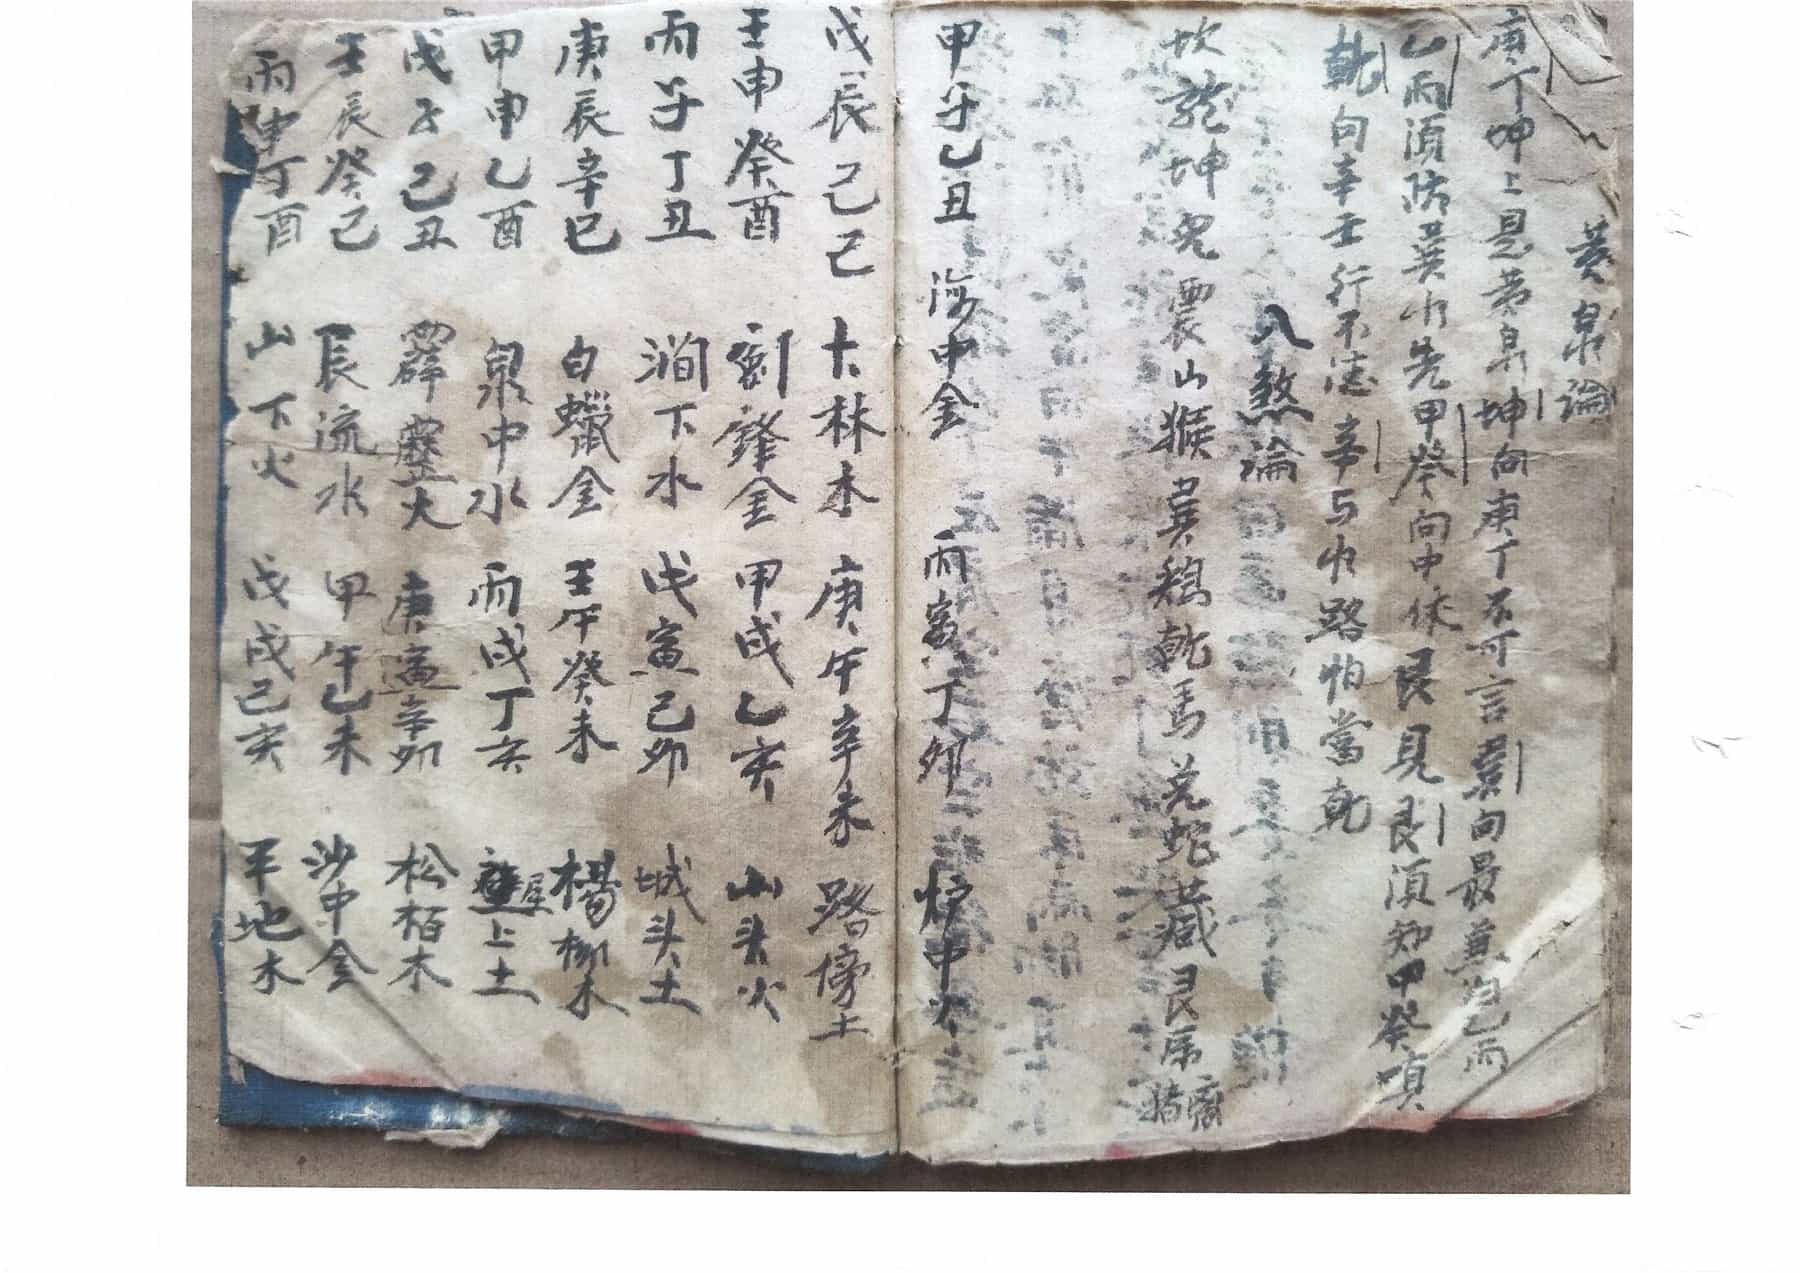 黄泉論
庚丁坤上是黄泉坤向庚丁不可言巽向最兼迎乙丙
乙丙須防巽水先甲癸向中休艮見艮須知甲癸填
乾向辛壬行不宜辛与水路怕當乾
八煞論
坎龍坤兔震山猴巽鷄乾馬兑蛇藏艮虎
甲子乙丑 海中金 丙寅丁卯 炉中火
戊辰己巳 大林木 庚午辛未 路傍土
壬申癸酉 劍鋒金 甲戌乙亥 山头火
丙子丁丑 澗下水 戊寅己卯 城头土
庚辰辛巳 白蠟金 壬午癸未 楊柳木
甲申乙酉 泉中水 丙戌丁亥 屋上土
戊子己丑 霹靂火 庚寅辛卯 松栢木
壬辰癸巳 長流水 甲午乙未 沙中金
丙申丁酉 山下火 戊戌己亥 平地木